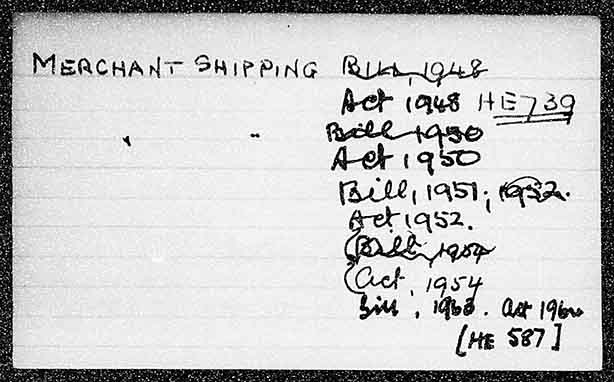 MERCHANT SHIPPING Bill, 1948
Act 1948 HE739
" " Bill 1950
Act 1950
Bill, 1951; 1952.
Act 1952.
(Bill, 1954
(Act, 1954
Bill, 1963. Act 196
[HE 587]